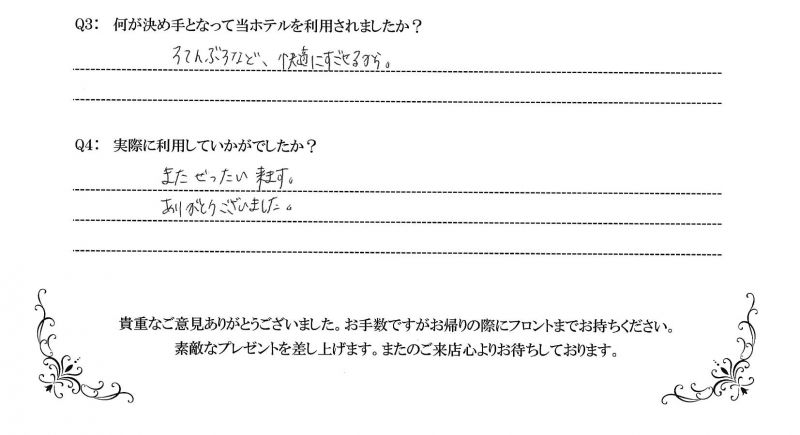 Q3: 何が決め手となって当ホテルを利用されましたか？
ろてんぶろなど、快適にすごせるから。
Q4: 実際に利用していかがでしたか？
また ぜったい 来ます。
ありがとうございました。
貴重なご意見ありがとうございました。お手数ですがお帰りの際にフロントまでお持ちください。
素敵なプレゼントを差し上げます。またのご来店心よりお待ちしております。